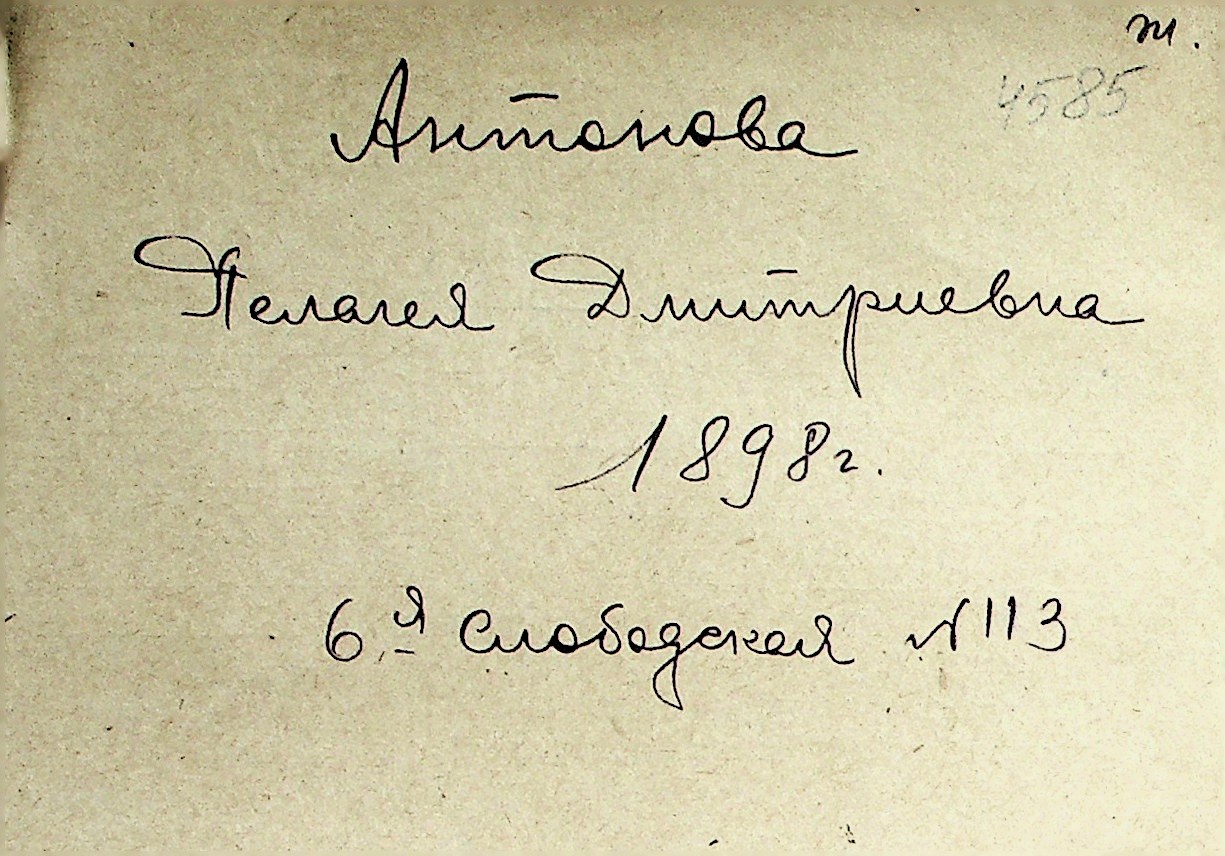 т.
4585
Антонова
Пелагея Дмитриевна
1898г.
6-я Слободская №113